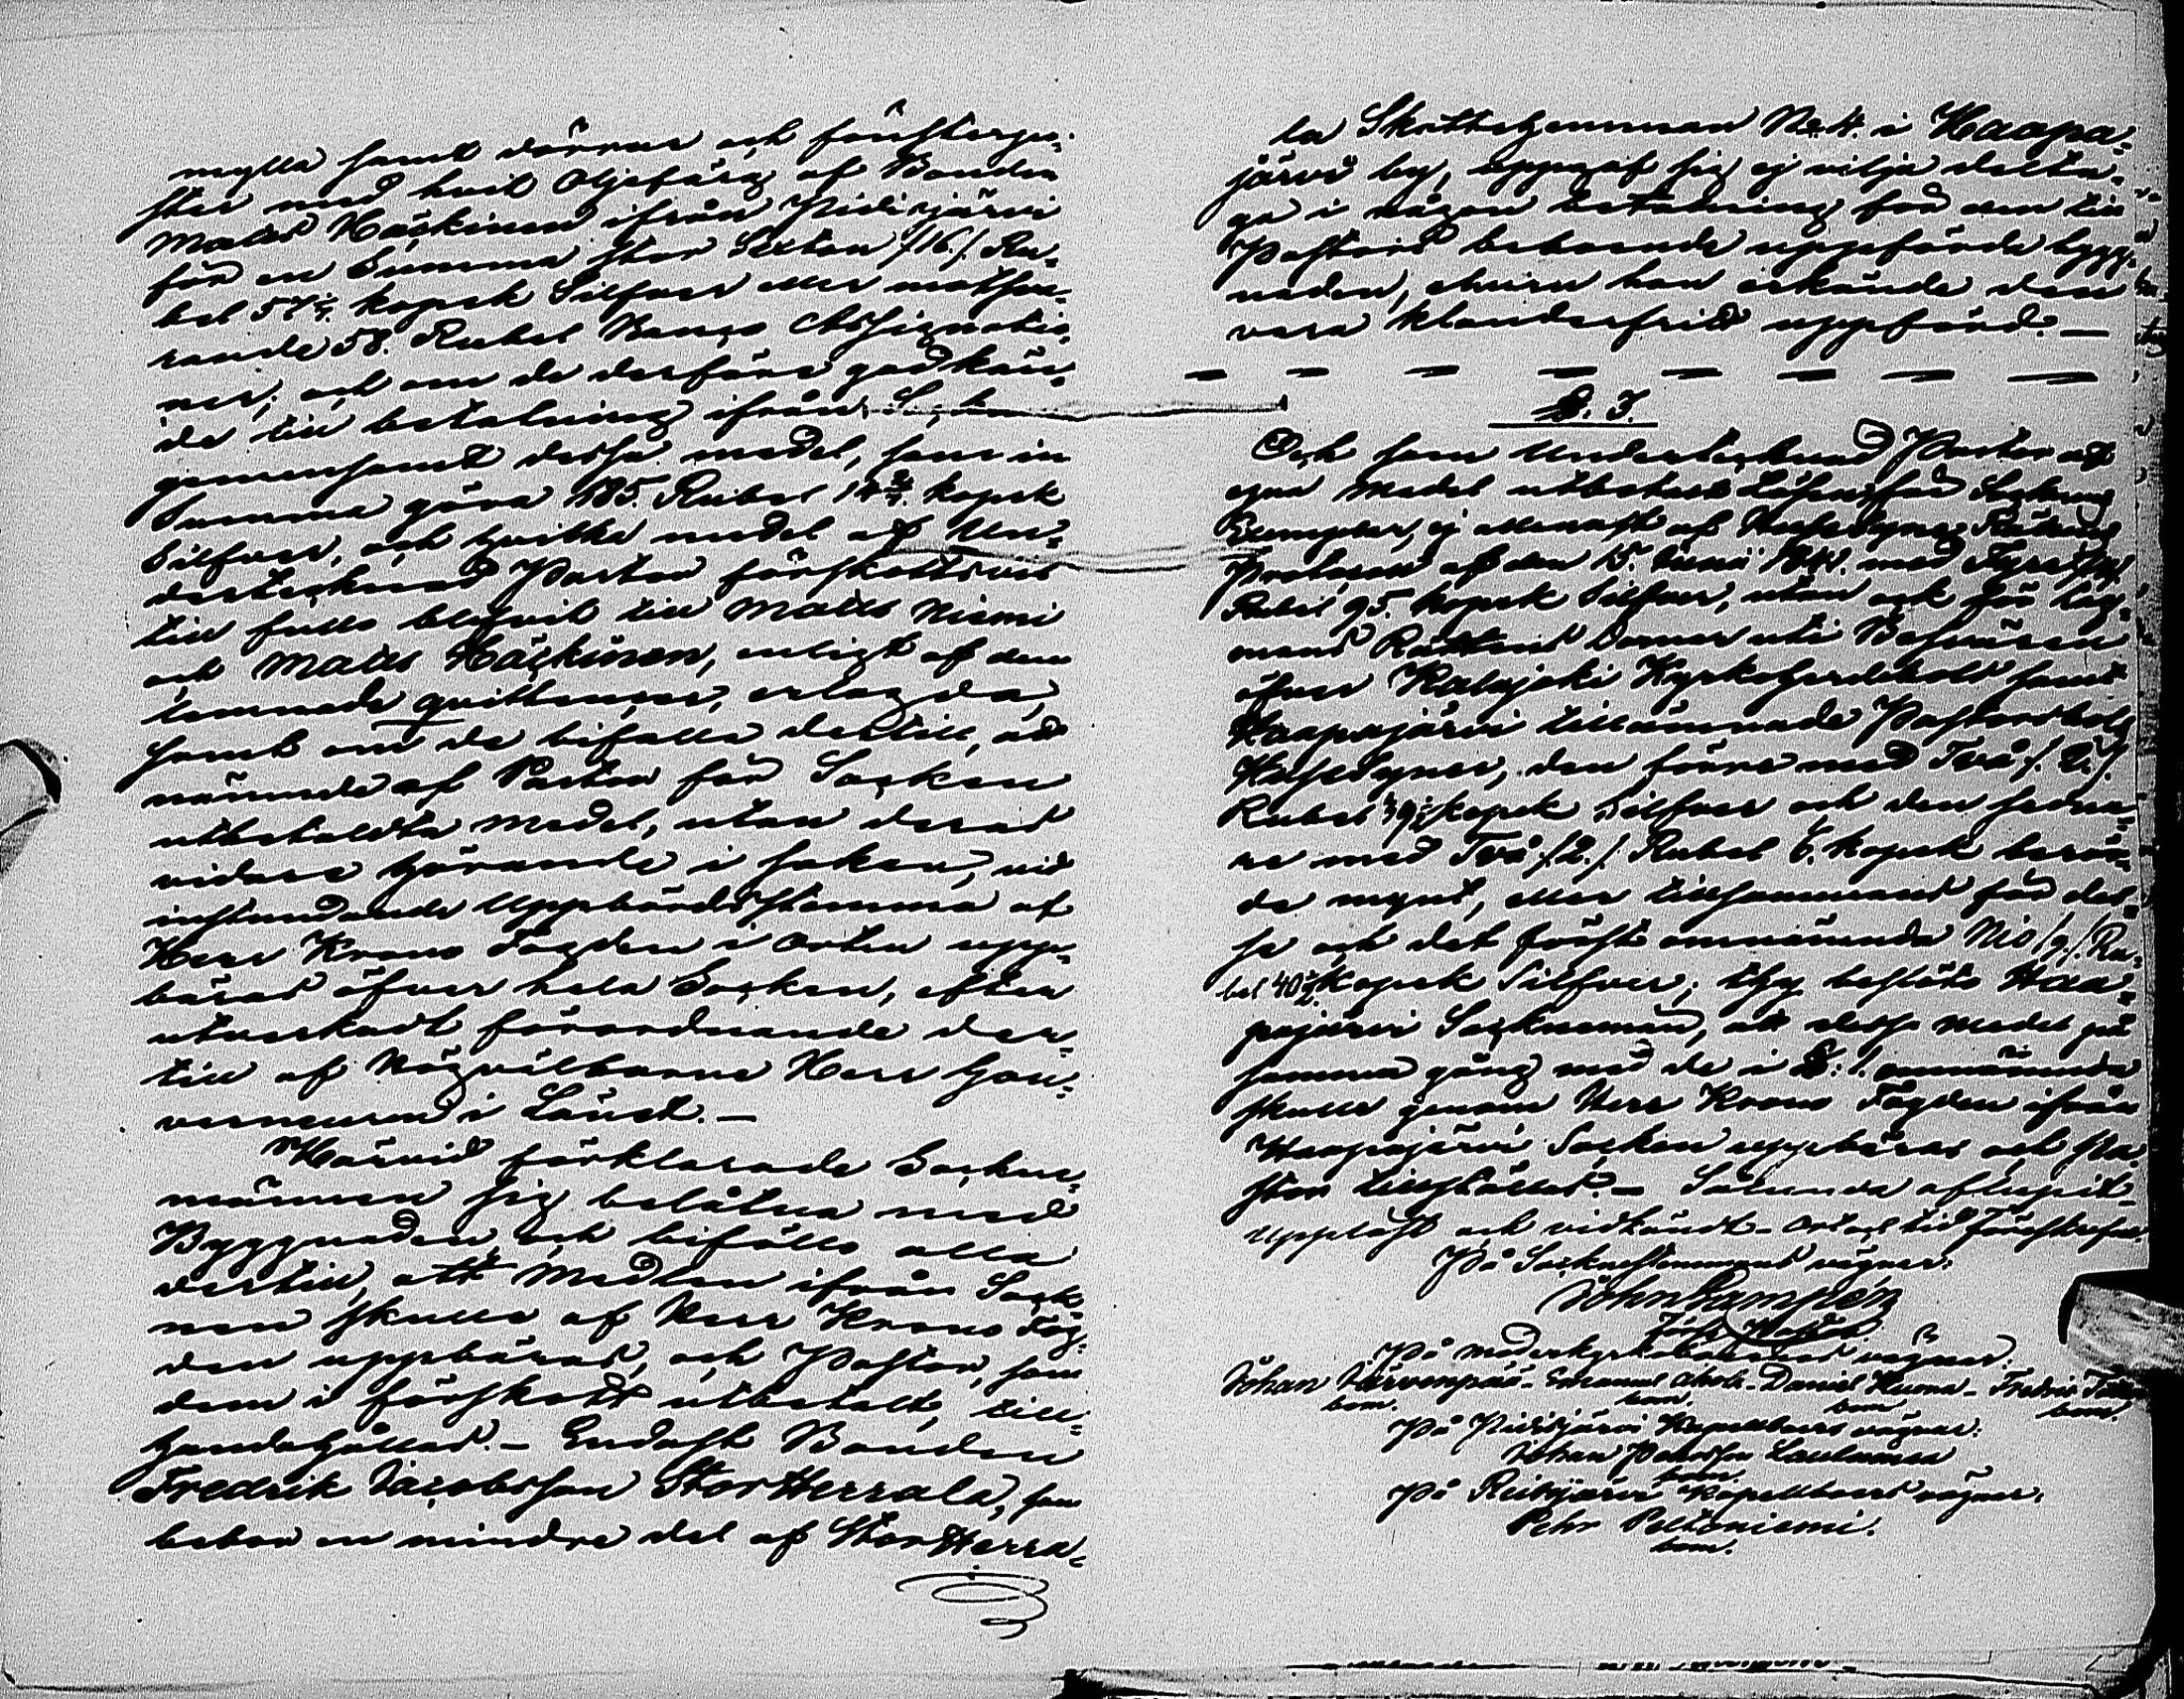 mylla samt dörrar och fönsterpo-
ster med hvit Oljefärg af Bonden
Matts Häckinen ifrån Pidisjärvi
för en Summa stor Sexton /16/ Ru-
bel 57 1/7 kopek Silfver eller motsva-
rande 58. Rubel Banco Assignatio-
ner, och om de derföre godkän-
de till betalning ifrån
gemensamt dessa medel, som in
Summa göra 185 Rubel 14 2/7 kopek
Silfver, och hvilka medel af Un-
dertecknad Pastor förskottsvis
till fullo blifvit till Matts Niemi
och Matts Häckinen, enligt af dem
lemnade quittencer, erlagda,
samt om de bifalla dertill, att
nämnde af Pastor för Socken
utbetaldta medel, utan deras
vidare hörande i saken, vid
instundande Uppbördsstämma af
Herr Krono Fogden i orten upp-
bäras öfver hela Socken, efter
utverkadt förordnande der-
till af Högvälborne Herr Gou-
verneuren i Länet. —
Härvid förklarade Socken-
männen sig belåtna med
Byggnaden och biföllo alla
dertill, att Medlen ifrån Sock-
nen skulle af Herr Krono Fog-
den uppbäras, och Pastor, som
dem i förskott utbetalt, till-
handahållas. — Endast Bonden
Fredrik Jacobsson StorHerrala, som
bebor en mindre del af StorHerra-
la Skattehemman No 4. i Haapa-
järvi by, uppgaf sig ej vilja delta-
ga i någon betalning för den till
Pastors beboende uppförde bygg-
naden, ehuru han erkände den
vara klanderfritt uppförd. —
— — — — — — — —
§. 3.
Och som Undertecknad Pastor af
egna medel utbetalt Lösen för
Exemplar, ej allenast af Husesyns
Protocoll af den 15. Junii 1841. med Fyra /4/
Rubel 95. kopek Silfver, utan ock för Lag-
mans Rättens Domar uti Besvären
öfver Kalajoki Kyrkoherdebols samt
Haapajärvi tillämnade Pastorsbols
Husesyner, den förre med Två /2./
Rubel 39 1/2 kopek Silfver och den sedna-
re med Två /2./ Rubel 6. kopek berör-
de mynt, eller tillsammans för des-
sa och det först omnämnda Nio /9./ Ru-
bel 40 1/2 kopek Silfver; Ty beslöto Haa-
pajärvi Sockenemän, att dessa medel på
samma gång med de i §. 1. omnämnda
skulle genom Herr Krono Fogden ifrån
Haapajärvi Socken uppbäras och Pa-
stor tillställas. — Sålunda aflupit-
Uppläst och vidkändt- Ort och tid förskrefne.
På Sockenstämmans vägnar:
Johan
På moderkyrkoboernes vägnar:
Johan Järvenpää - Emanuel - Daniel - Fredric
bom. bom. bom. bom.
På Pidisjärvi Kapellboers vägnar:
Johan
bom.
På Reisjärvi Kapellboers vägnar:
Pehr Peltoniemi.
bom.